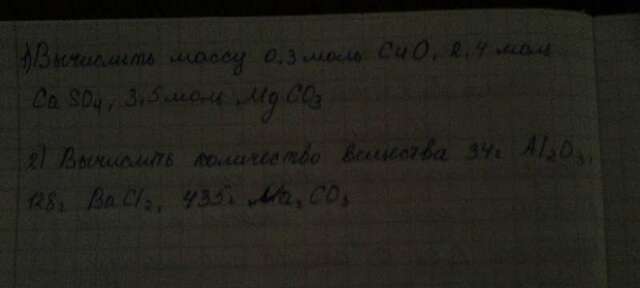 1) Вычислить массу 0,3 моль CuO, 2,4 моль
CaSO₄, 3,5 моль MgCO₃
2) Вычислить количество вещества 34г Al₂O₃,
128г BaCl₂, 435г Na₂CO₃